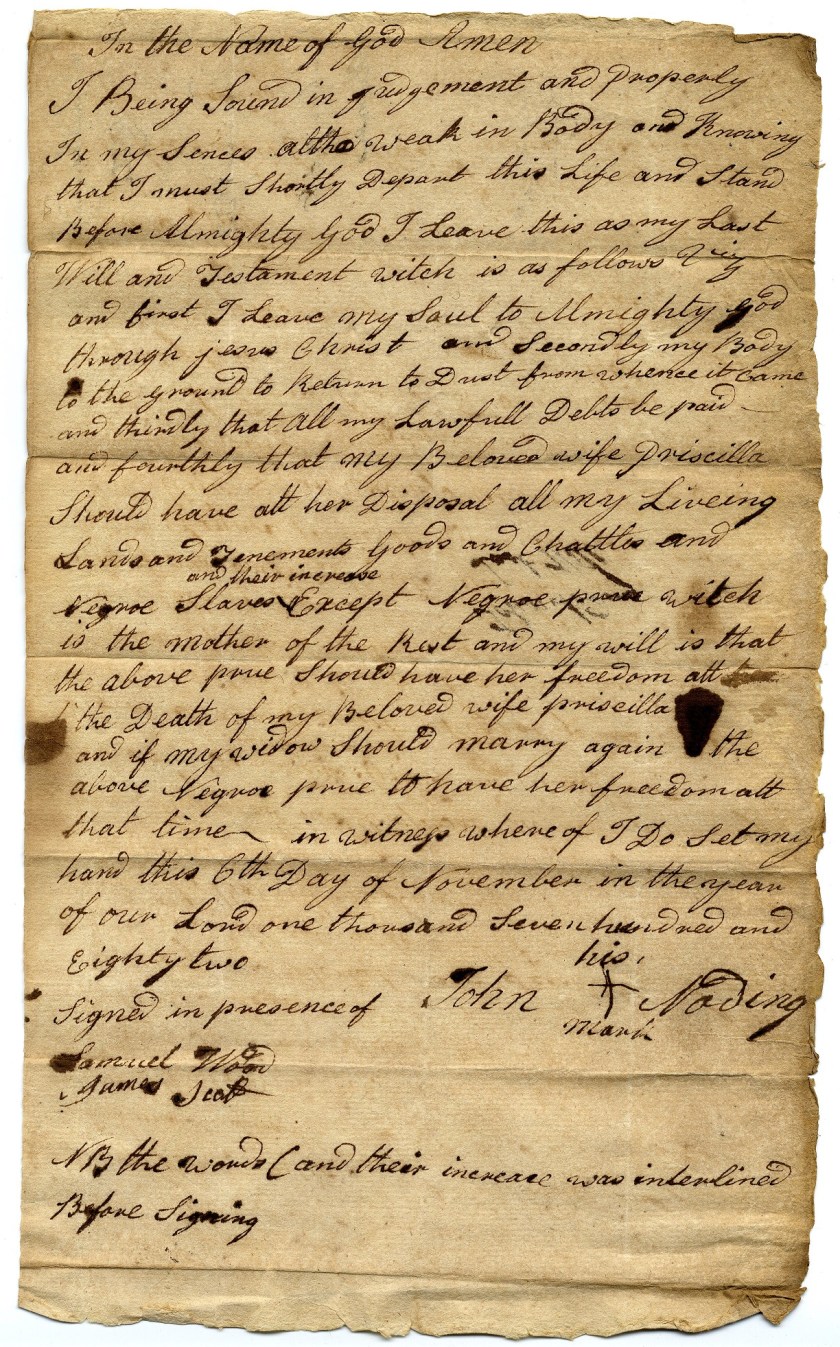 In the Name of God Amen
I Being Sound in judgement and properly
In my Sences altho weak in Body and Knowing
that I must Shortly Depart this Life and Stand
Before Almighty God I Leave this as my Last
Will and Testament witch is as follows Viz
and first I Leave my Soul to Almighty god
through jesus Christ and Secondly my Body
to the ground to Return to Dust from whence it Came
and thirdly that All my Lawfull Debts be paid
and fourthly that my Beloved wife Priscilla
Should have att her Disposal all my Liveing
Lands and Tenements Goods and Chattles and
and their increase
Negroe Slaves Except Negroe prue witch
is the mother of the Rest and my will is that
the above prue Should have her freedom att
the Death of my Beloved wife priscilla
and if my widow Should marry again the
above Negroe prue to have her freedom att
that time in witness where of I Do Set my
hand this 6th Day of November in the year
of our Lord one thousand Seven hundred and
Eighty two
his
Signed in presence of John + Noding
mark
Samuel Wood
James Scott
NB the words (and their increase was interlined
Before Signing